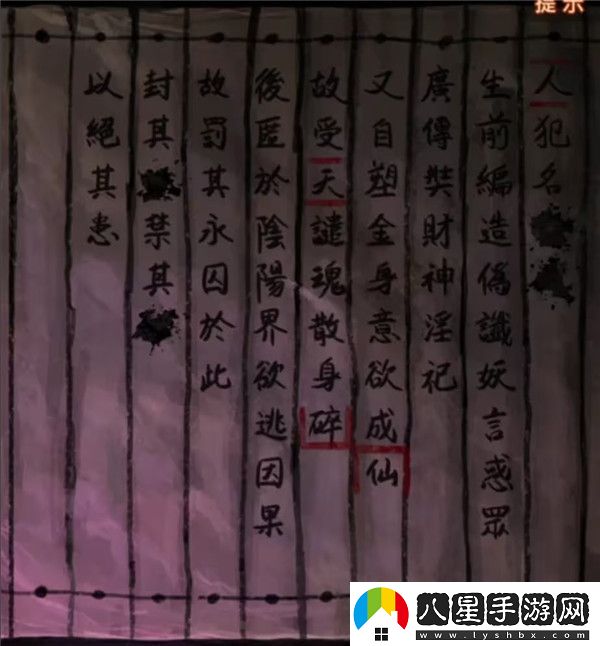 提示
人犯名
生前編造偽讖妖言惑眾
廣傳奘財神淫祀
又自塑金身意欲成仙
故受天譴魂散身碎
後匿於陰陽界欲逃因果
故罰其永囚於此
封其禁其
以絕其患
八星手游网
www.lyshbx.com